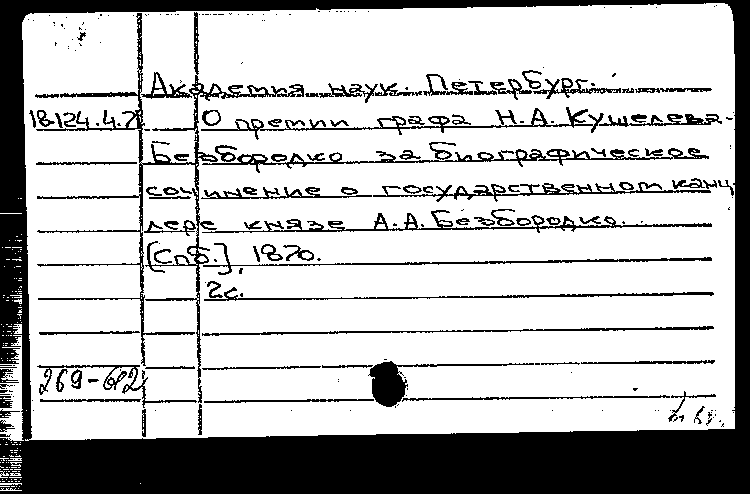 Академия наук. Петербург.
18.124.4.7 О премии графа Н.А. Кушелева-
Безбородко за биографическое
сочинение о государственном канц
лере князе А.А. Безбородко.
[Спб.], 1870.
2с.
269-682